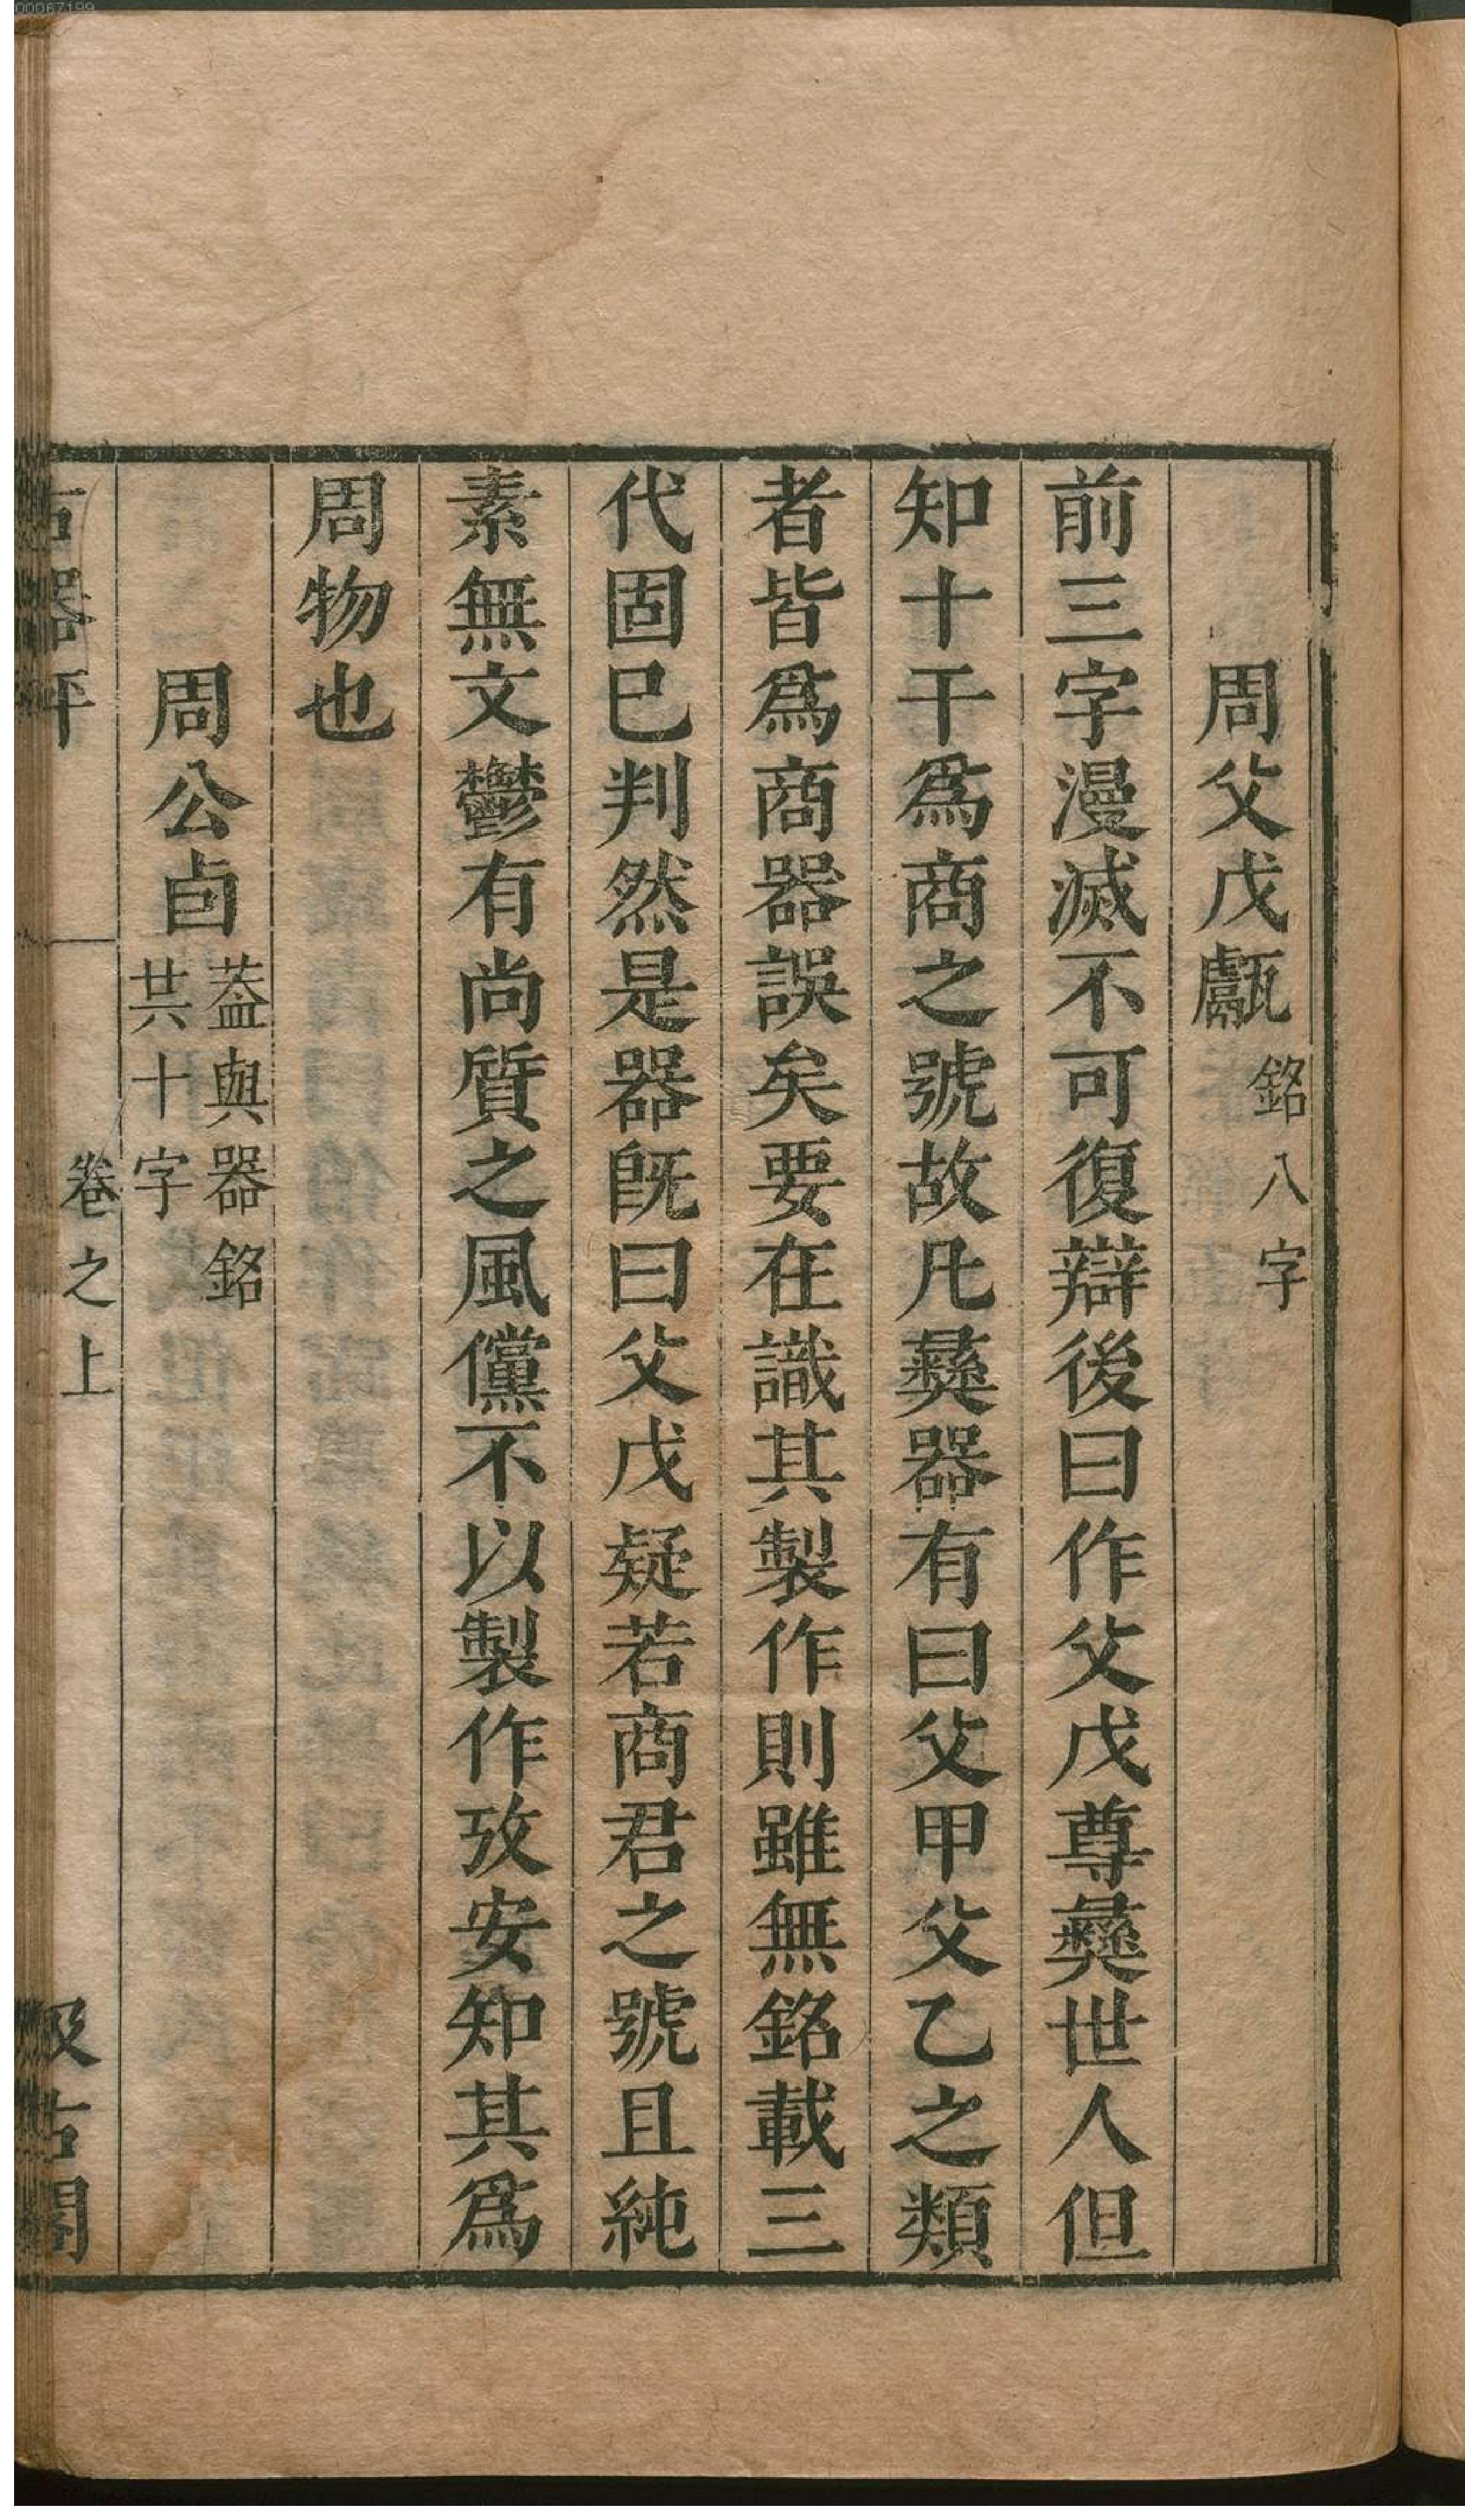 周父戊甗銘八字
前三字漫滅不可復辯後曰作父戊尊彝世人但
知十干爲商之號故凡彝器有曰父甲父乙之類
者皆爲商器誤矣要在識其製作則雖無銘載三
代固已判然是器旣曰父戊疑若商君之號且純
素無文鬱有尚質之風儻不以製作攷安知其爲
周物也
周公卣蓋與器銘
共十字
古器評 卷之上 汲古閣
00067199